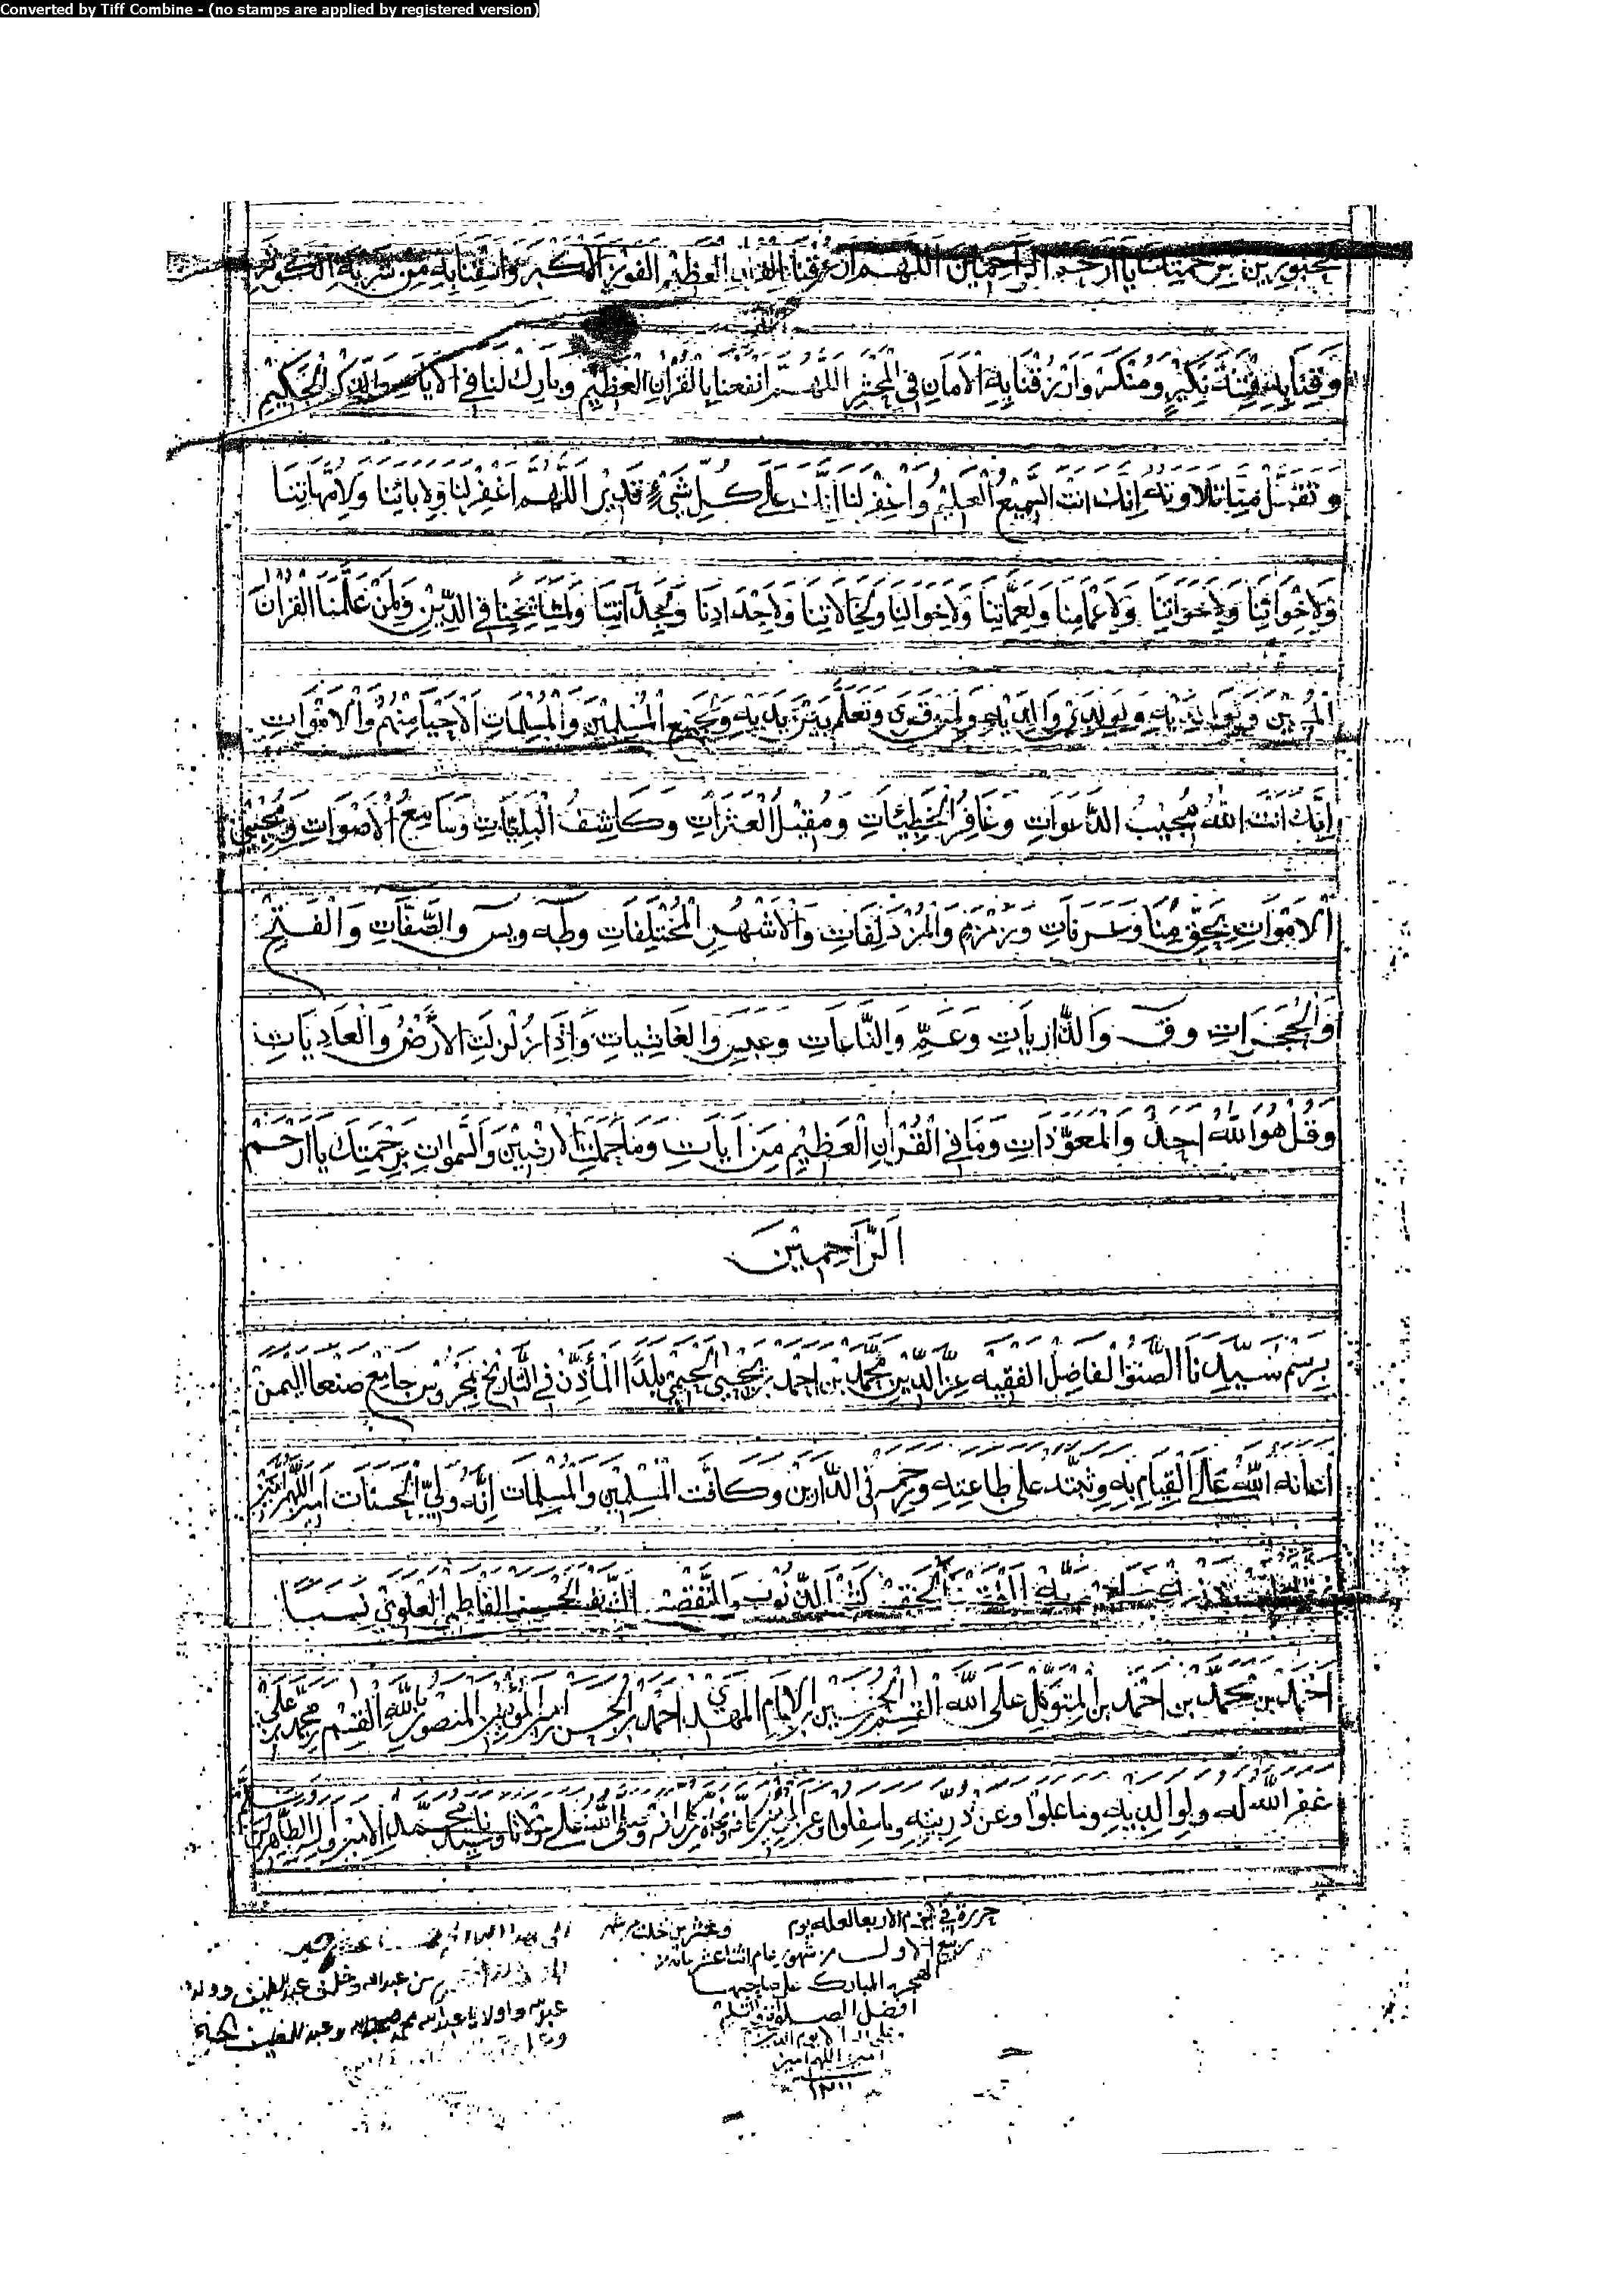 Converted by Tiff Combine - (no stamps are applied by registered version)
برحمتك يا ارحم الراحمين اللهم ارزقنا بالقران العظيم الفوز الاكبر واسقنا به من شربة الكوثر
وَقِنَا بِهِ فِتْنَةَ نَكِيْرٍ وَمُنْكَرْ وَارْزقْنَا بِهِ الْاَمَانِ فِي الْمَحْشَرِ اللَّهُمَّ انْفَعْنَا بِالْقُرْاَنِ الْعَظِيْمِ وَبَارِكْ لَنَا فِي الْاَيَاتِ وَالذِّكْرِ الْحَكِيْمِ
وَتَقَبَّلْ مِنَّا تِلَاوَتَهُ اِنَّكَ اَنْتَ السَّمِيْعُ الْعَلِيْمُ وَاغْفِرْ لَنَا اِنَّكَ عَلَى كُلِّ شَيْءٍ قَدِيْرٌ اللَّهُمَّ اغْفِرْ لَنَا وَلِاَبَائِنَا وَلِاُمَّهَاتِنَا
وَلِاِخْوَانِنَا وَلِاَخَوَاتِنَا وَلِاَعْمَامِنَا وَلِعَمَّاتِنَا وَلِاَخْوَالِنَا وَلِخَالَاتِنَا وَلِاَجْدَادِنَا وَلِجِدَّاتِنَا وَلِمَشَائِخِنَا فِي الدِّيْنِ وَلِمَنْ عَلَّمَنَا الْقُرْاَنَ
وَلِوَالِدَيْهِ وَلِوَالِدَيْ وَالِدَيْهِ وَلِمَنْ قَرَى وَتَعَلَّمَ بَيْنَ يَدَيْهِ وَلِجَمِيْعِ الْمُسْلِمِيْنَ وَالْمُسْلِمَاتِ الْاَحْيَا مِنْهُمْ وَالْاَمْوَاتِ
اِنَّكَ اَنْتَ اللهُ مُجِيْبُ الدَّعَوَاتِ وَغَافِرُ الْخَطِيْئَاتِ وَمُقِيْلُ الْعَثَرَاتِ وَكَاشِفُ الْبَلِيَّاتِ وَسَامِعُ الْاَصْوَاتِ وَمُحْيِيْ
الْاَمْوَاتِ بِحَقِّ مِنَا وَعَرَفَاتِ وَزَمْزَمَ وَالْمُزْدَلِفَاتِ وَالْاَشْهُرِ الْمُخْتَلِفَاتِ وَطه وَيس وَالصَّفَّاتِ وَالْفَتْحِ
وَالْحُجَرَاتِ وَق وَالذَّارِيَاتِ وَعَمَّ وَالنَّازِعَاتِ وَعَبَسَ وَالْغَاشِيَاتِ وَاِذَا زُلْزِلَتِ الْاَرْضُ وَالْعَادِيَاتِ
وَقُلْ هُوَ اللهُ اَحَدٌ وَالْمُعَوِّذَاتِ وَمَا فِي الْقُرْاَنِ الْعَظِيْمِ مِنْ اَيَاتِ وَمَا حَمَلَتِ الْاَرَضِيْنَ وَالسَّمَوَاتِ بِرَحْمَتِكَ يَا اَرْحَمَ
الرَّاحِمِيْنَ
بِرَسْمِ سَيِّدِنَا الصِّنْو الْفَاضِل الْفَقِيْه عِزّ الدِّيْن مُحَمَّد بْن اَحْمَد بْن يَحْيَى بَلَدًا الْمَأْذِّنْ فِي التَّارِيْخ جَامِع صَنْعَا الْيَمَنْ
اَعَانَهُ اللهُ عَلَى الْقِيَامِ بِهِ وَثَبَّتَهُ عَلَى طَاعَتِهِ وَرَحِمَهُ فِي الدَّارَيْن وَكَافَّتِ الْمُسْلِمِيْنَ وَالْمُسْلِمَات اِنَّهُ وَلِيُّ الْحَسَنَات اَمِيْن اللَّهُمَّ اَمِيْن
الْحَقِيْر كَثِيْر الذُّنُوْب وَالتَّقْصِيْر الشَّرِيْف الْحَسَنِي الْفَاطِمِي الْعَلَوِي نَسَبًا
اَحْمَد بن مُحَمَّد بن اَحْمَد بن الْمُتَوَكِّل عَلَى اللهِ الْقَسِم بن الْحُسَيْن بن الْاِمَام الْمَهْدِي اَحْمَد بن الْحَسَن بن اَمِيْر الْمُؤْمِنِيْن الْمَنْصُوْر بِاللهِ الْقَسِم بن مُحَمَّد بن عَلِي
غَفَرَ اللهُ لَه وَلِوَالِدَيْهِ وَمَا عَلَوْا وَعَنْ ذُرِّيَّتِهِ وَمَا سَفَلُوْا وَصَلَّى اللهُ عَلَى مَوْلَانَا وَسَيِّدِنَا مُحَمَّد الْاَمِيْن وَاَلِهِ الطَّاهِرِيْن
حرره في يوم الاربعا لعله يوم وعشرين خلت من شهر
ربيع الاول من شهور عام اثنا عشر مائه
الهجره المباركه على صاحبها
افضل الصلاة والتسليم
وعلى اله الى يوم الدين
امين اللهم امين
١٢١١
بن عبدالله وخلف عبداللطيف وولده
عبدالله واولاد عبدالله وعبداللطيف